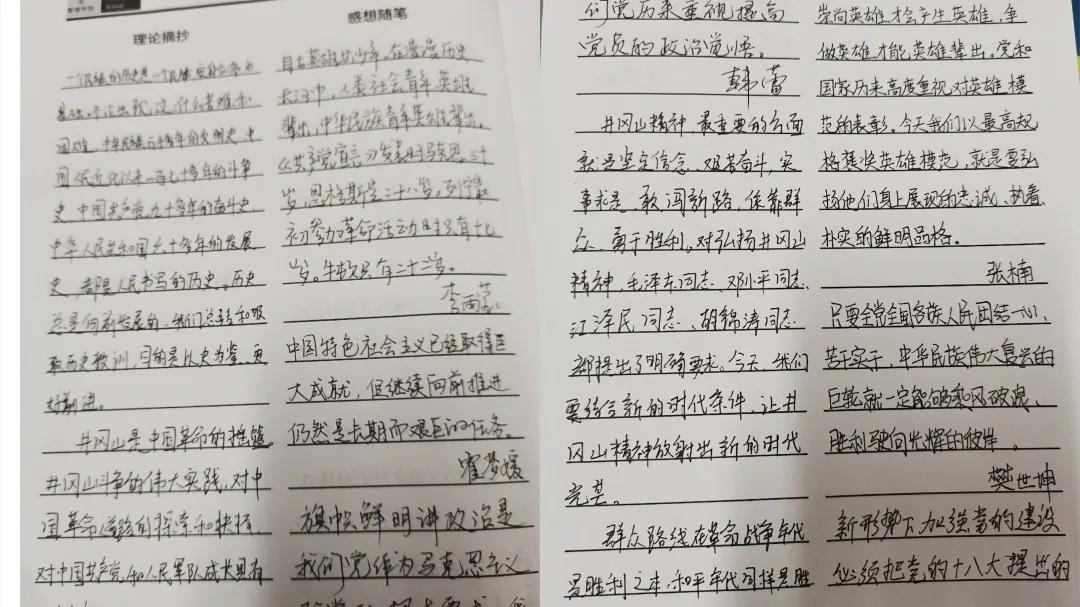 管理学院
School
理论摘抄
一个民族的历史是一个民族安身立命的
基础。不论出现过什么苦难和
困难,中华民族五千多年的文明史,中
国人民近代以来一百七十多年的斗争
史,中国共产党九十多年的奋斗史,
中华人民共和国六十多年的发展
史,都是人民书写的历史。历史
总是向前发展的,我们总结和吸
取历史教训,目的是以史为鉴、更
好前进。
井冈山是中国革命的摇篮。
井冈山斗争的伟大实践,对中
国革命道路的探索和抉择、
对中国共产党和人民军队成长具有
感想随笔
自古英雄出少年。在漫漫历史
长河中,人类社会青年英雄
辈出,中华民族青年英雄辈出。
《共产党宣言》发表时马克思三十
岁,恩格斯是二十八岁。列宁最
初参加革命活动时只有十七
岁。牛顿只有二十二岁。
中国特色社会主义已经取得巨
大成就,但继续向前推进
仍然是长期而艰巨的任务。
霍梦媛
旗帜鲜明讲政治是
我们党作为马克思主义
们党历来重视提高
党员的政治觉悟。
韩蕾
井冈山精神,最重要的方面
就是坚定信念、艰苦奋斗,实
事求是、敢闯新路,依靠群
众、勇于胜利。对弘扬井冈山
精神,毛泽东同志、邓小平同志、
江泽民同志、胡锦涛同志
都提出了明确要求。今天,我们
要结合新的时代条件,让井
冈山精神放射出新的时代
光芒。
群众路线在革命战争年代
是胜利之本,和平年代同样是胜
崇尚英雄才会产生英雄,争
做英雄才能英雄辈出。党和
国家历来高度重视对英雄模
范的表彰。今天我们以最高规
格褒奖英雄模范,就是要弘
扬他们身上展现的忠诚、执着、
朴实的鲜明品格。
张楠
只要全党全国各族人民团结一心、
苦干实干,中华民族伟大复兴的
巨轮就一定能够乘风破浪、
胜利驶向光辉的彼岸。
樊世坤
新形势下加强党的建设
必须把党的十八大提出的